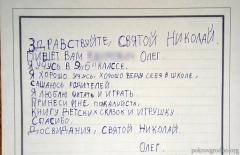 Здравствуйте, Святой Николай.
Пишет Вам Олег.
Я учусь в 9б классе.
Я хорошо учусь, хорошо веду себя в школе,
слушаюсь родителей.
Я люблю читать и играть.
Принеси мне, пожалуйста,
книгу детских сказок и игрушку.
Спасибо.
До свидания, Святой Николай.
Олег.
pokrovgrodno.org